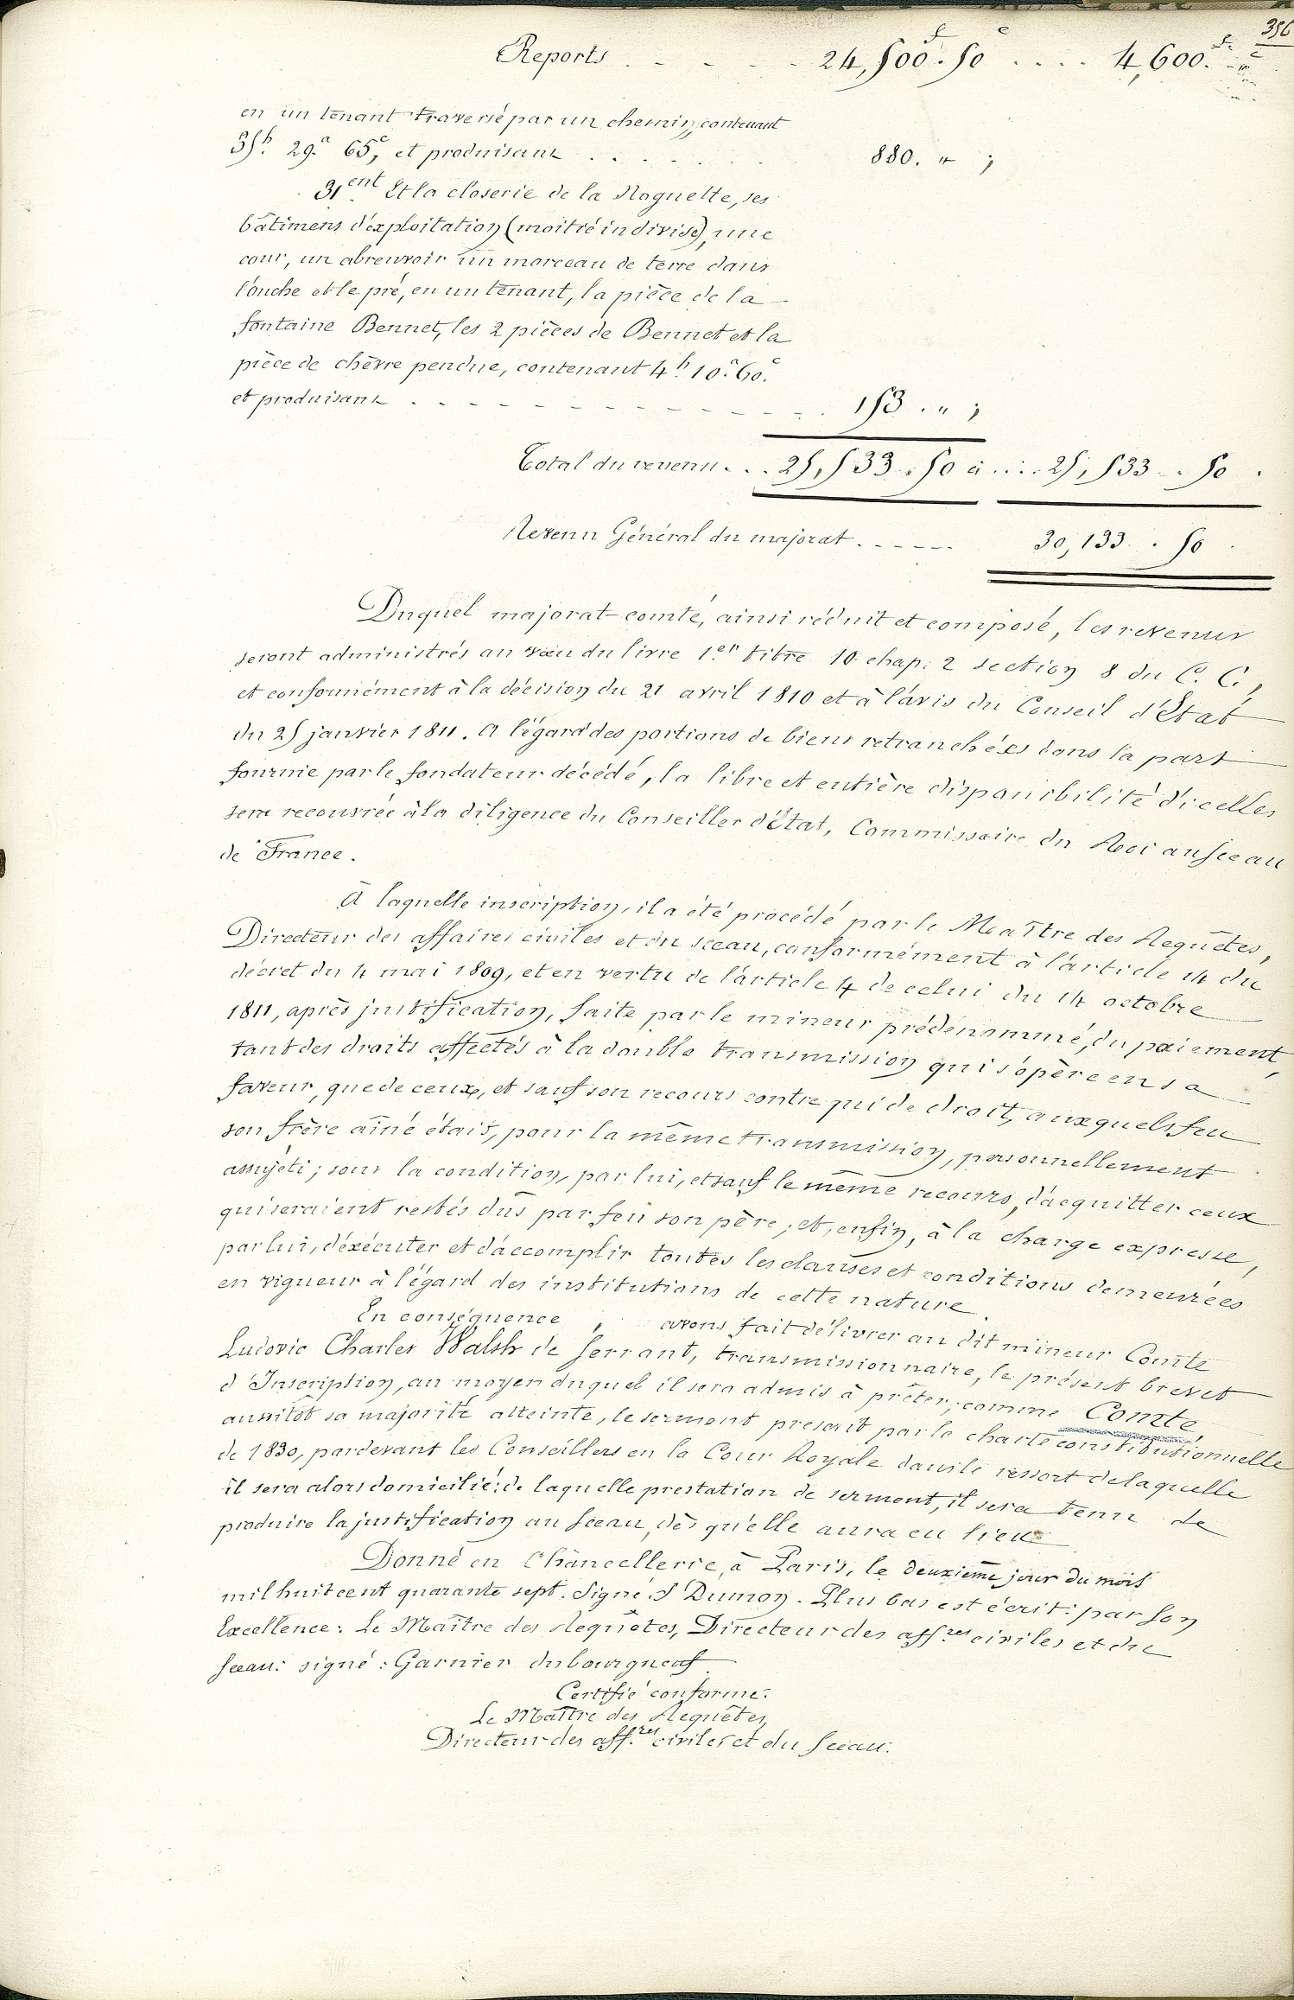 356
Reports . . . . . 24,500.f 50c . . . . 4,600.f " c
en un tenant traversé par un chemin, contenant
35h. 29.a 65,c et produisant . . . . . . . 880. " ;
31.ent Et la closerie de la Roguette, ses
bâtimens d'éxploitation (moitié indivise), une
cour, un abreuvoir un morceau de terre dans
l'ouche et le pré, en un tenant, la pièce de la
fontaine Bennet, les 2 pièces de Bennet et la
pièce de chèvre pendue, contenant 4h. 10.a 60.c
et produisant . . . . . . . . . . . 153 . " ;
Total du revenu. . . 25,533 . 50 ci . . . . 25,533 . 50 .
Revenu Général du majorat . . . . . 30,133 . 50 .
Duquel majorat-comté, ainsi réduit et composé, les revenus
seront administrés au vœu du livre 1.er titre 10 chap. 2 section 8 du C. C.,
et conformément à la décision du 21 avril 1810 et à l'avis du Conseil d'État
du 25 janvier 1811. A l'égard des portions de biens retranchées dans la part
fournie par le fondateur décédé, la libre et entière disponibilité d'icelles
sera recouvrée à la diligence du Conseiller d'État, Commissaire du Roi au Sceau
de France.
À laquelle inscription, il a été procédé par le Maître des Requêtes,
Directeur des affaires civiles et du sceau, conformément à l'article 14 du
décret du 4 mai 1809, et en vertu de l'article 4 de celui du 14 octobre
1811, après justification, faite par le mineur prédénommé, du paiement,
tant des droits affectés à la double transmission qui s'opère en sa
faveur, que de ceux, et sauf son recours contre qui de droit, auxquels feu
son frère aîné était, pour la même transmission, personnellement
assujéti ; sous la condition, par lui, et sauf le même recours, d'acquitter ceux
qui seraient restés dûs par feu son père ; et, enfin, à la charge expresse,
par lui, d'éxécuter et d'accomplir toutes les clauses et conditions demeurées
en vigueur à l'égard des institutions de cette nature.
En conséquence , avons fait délivrer au dit mineur Comte
Ludovic Charles Walsh de Serrant, transmissionnaire, le présent brevet
d'Inscription, au moyen duquel il sera admis à prêter, comme Comte,
aussitôt sa majorité atteinte, le serment prescrit par la charte constitutionnelle
de 1830, pardevant les Conseillers en la Cour Royale dans le ressort de laquelle
il sera alors domicilié : de laquelle prestation de serment, il sera tenu de
produire la justification au sceau, dès qu'elle aura eu lieu
Donné en Chancellerie, à Paris, le deuxième jour du mois
mil huit cent quarante sept. Signé : S Dumon. Plus bas est écrit : par Son
Excellence : Le Maître des Requêtes, Directeur des aff.res civiles et du
sceau : signé : Garnier dubourgneuf
Certifié conforme :
Le Maître des Requêtes,
Directeur des aff.res civiles et du sceau.